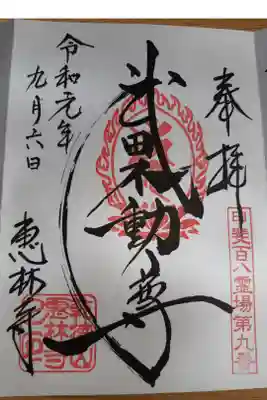 奉拝
甲斐百八霊場第九番
武田不動尊
令和元年
九月六日
恵林寺